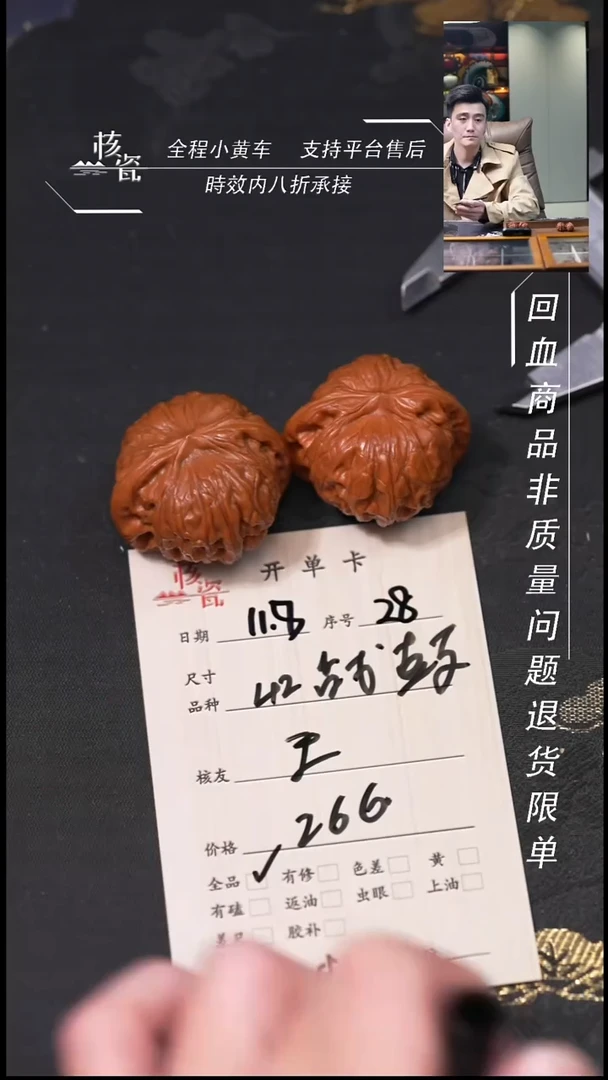 核瓷
全程小黄车 支持平台售后
時效内八折承接
回血商品非质量问题退货限单
核瓷
开单卡
日期 11.8 序号 28
尺寸
品种 42
核友 王
价格 266
全品 ✓ 有修 色差 黄
有磕 返油 虫眼 上油
胶补